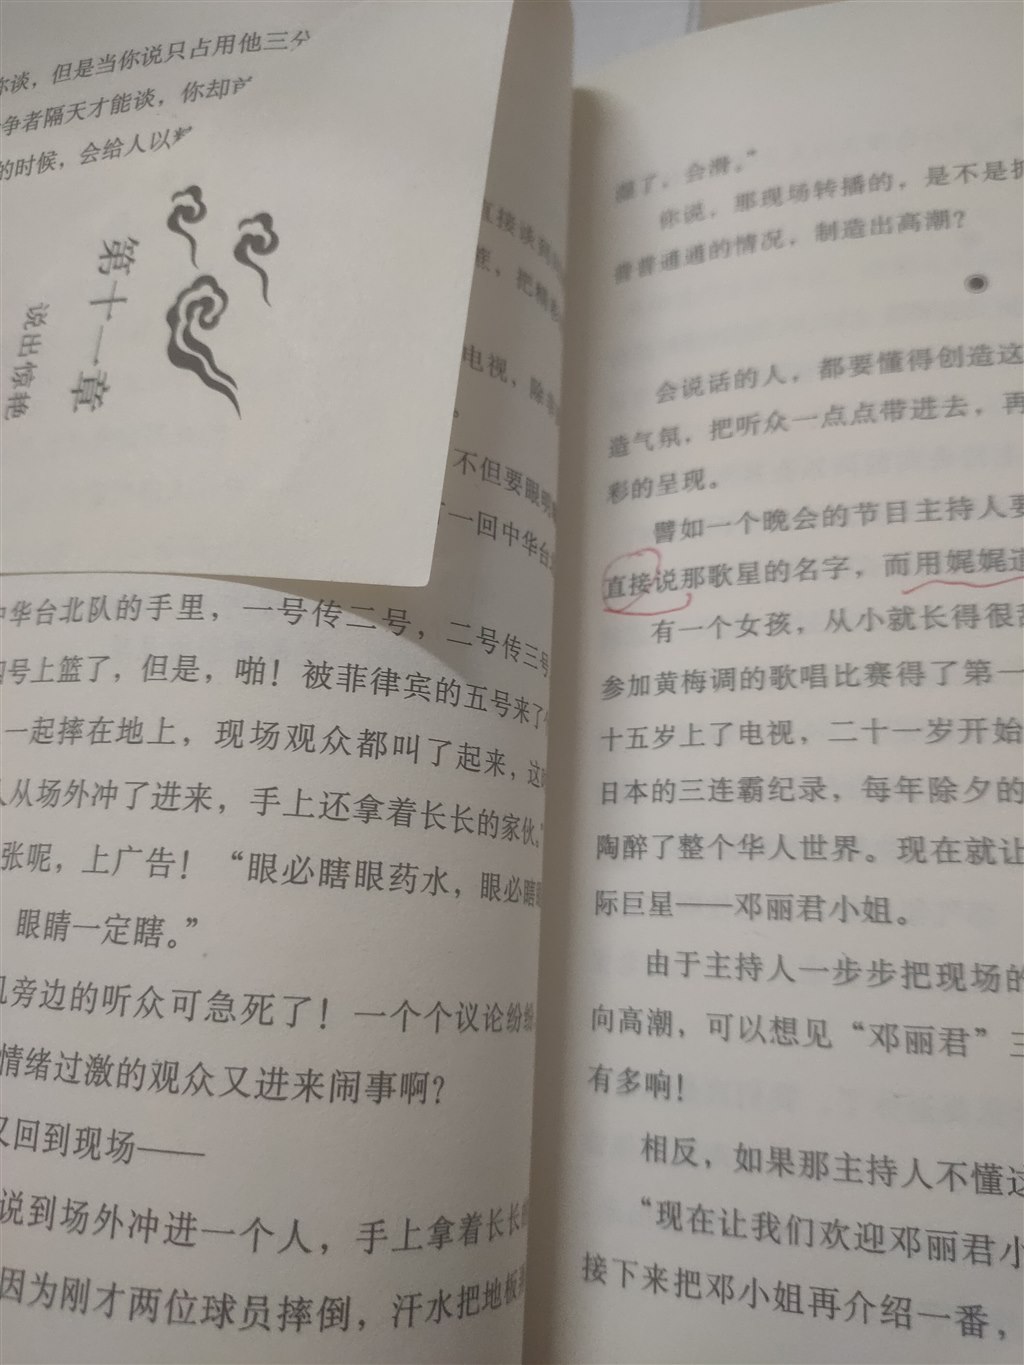 你谈，但是当你说只占用他三分
争者隔天才能谈，你却
的时候，会给人以
第十一章
说出惊艳
直接谈到
把
电视，除非
不但要眼明
一回中华台
中华台北队的手里，一号传二号，二号传三号
四号上篮了，但是，啪！被菲律宾的五号来了
一起摔在地上，现场观众都叫了起来，这
人从场外冲了进来，手上还拿着长长的家伙。
张呢，上广告！“眼必瞎眼药水，眼必瞎
眼睛一定瞎。”
机旁边的听众可急死了！一个个议论纷纷
情绪过激的观众又进来闹事啊？
又回到现场——
说到场外冲进一个人，手上拿着长长的
因为刚才两位球员摔倒，汗水把地板
湿了，会滑。”
你说，那现场转播的，是不是把
普普通通的情况，制造出高潮？
会说话的人，都要懂得创造这
造气氛，把听众一点点带进去，再
彩的呈现。
譬如一个晚会的节目主持人要
直接说那歌星的名字，而用娓娓道
有一个女孩，从小就长得很
参加黄梅调的歌唱比赛得了第一
十五岁上了电视，二十一岁开始
日本的三连霸纪录，每年除夕的
陶醉了整个华人世界。现在就让
际巨星——邓丽君小姐。
由于主持人一步步把现场的
向高潮，可以想见“邓丽君”三
有多响！
相反，如果那主持人不懂这
“现在让我们欢迎邓丽君小
接下来把邓小姐再介绍一番，